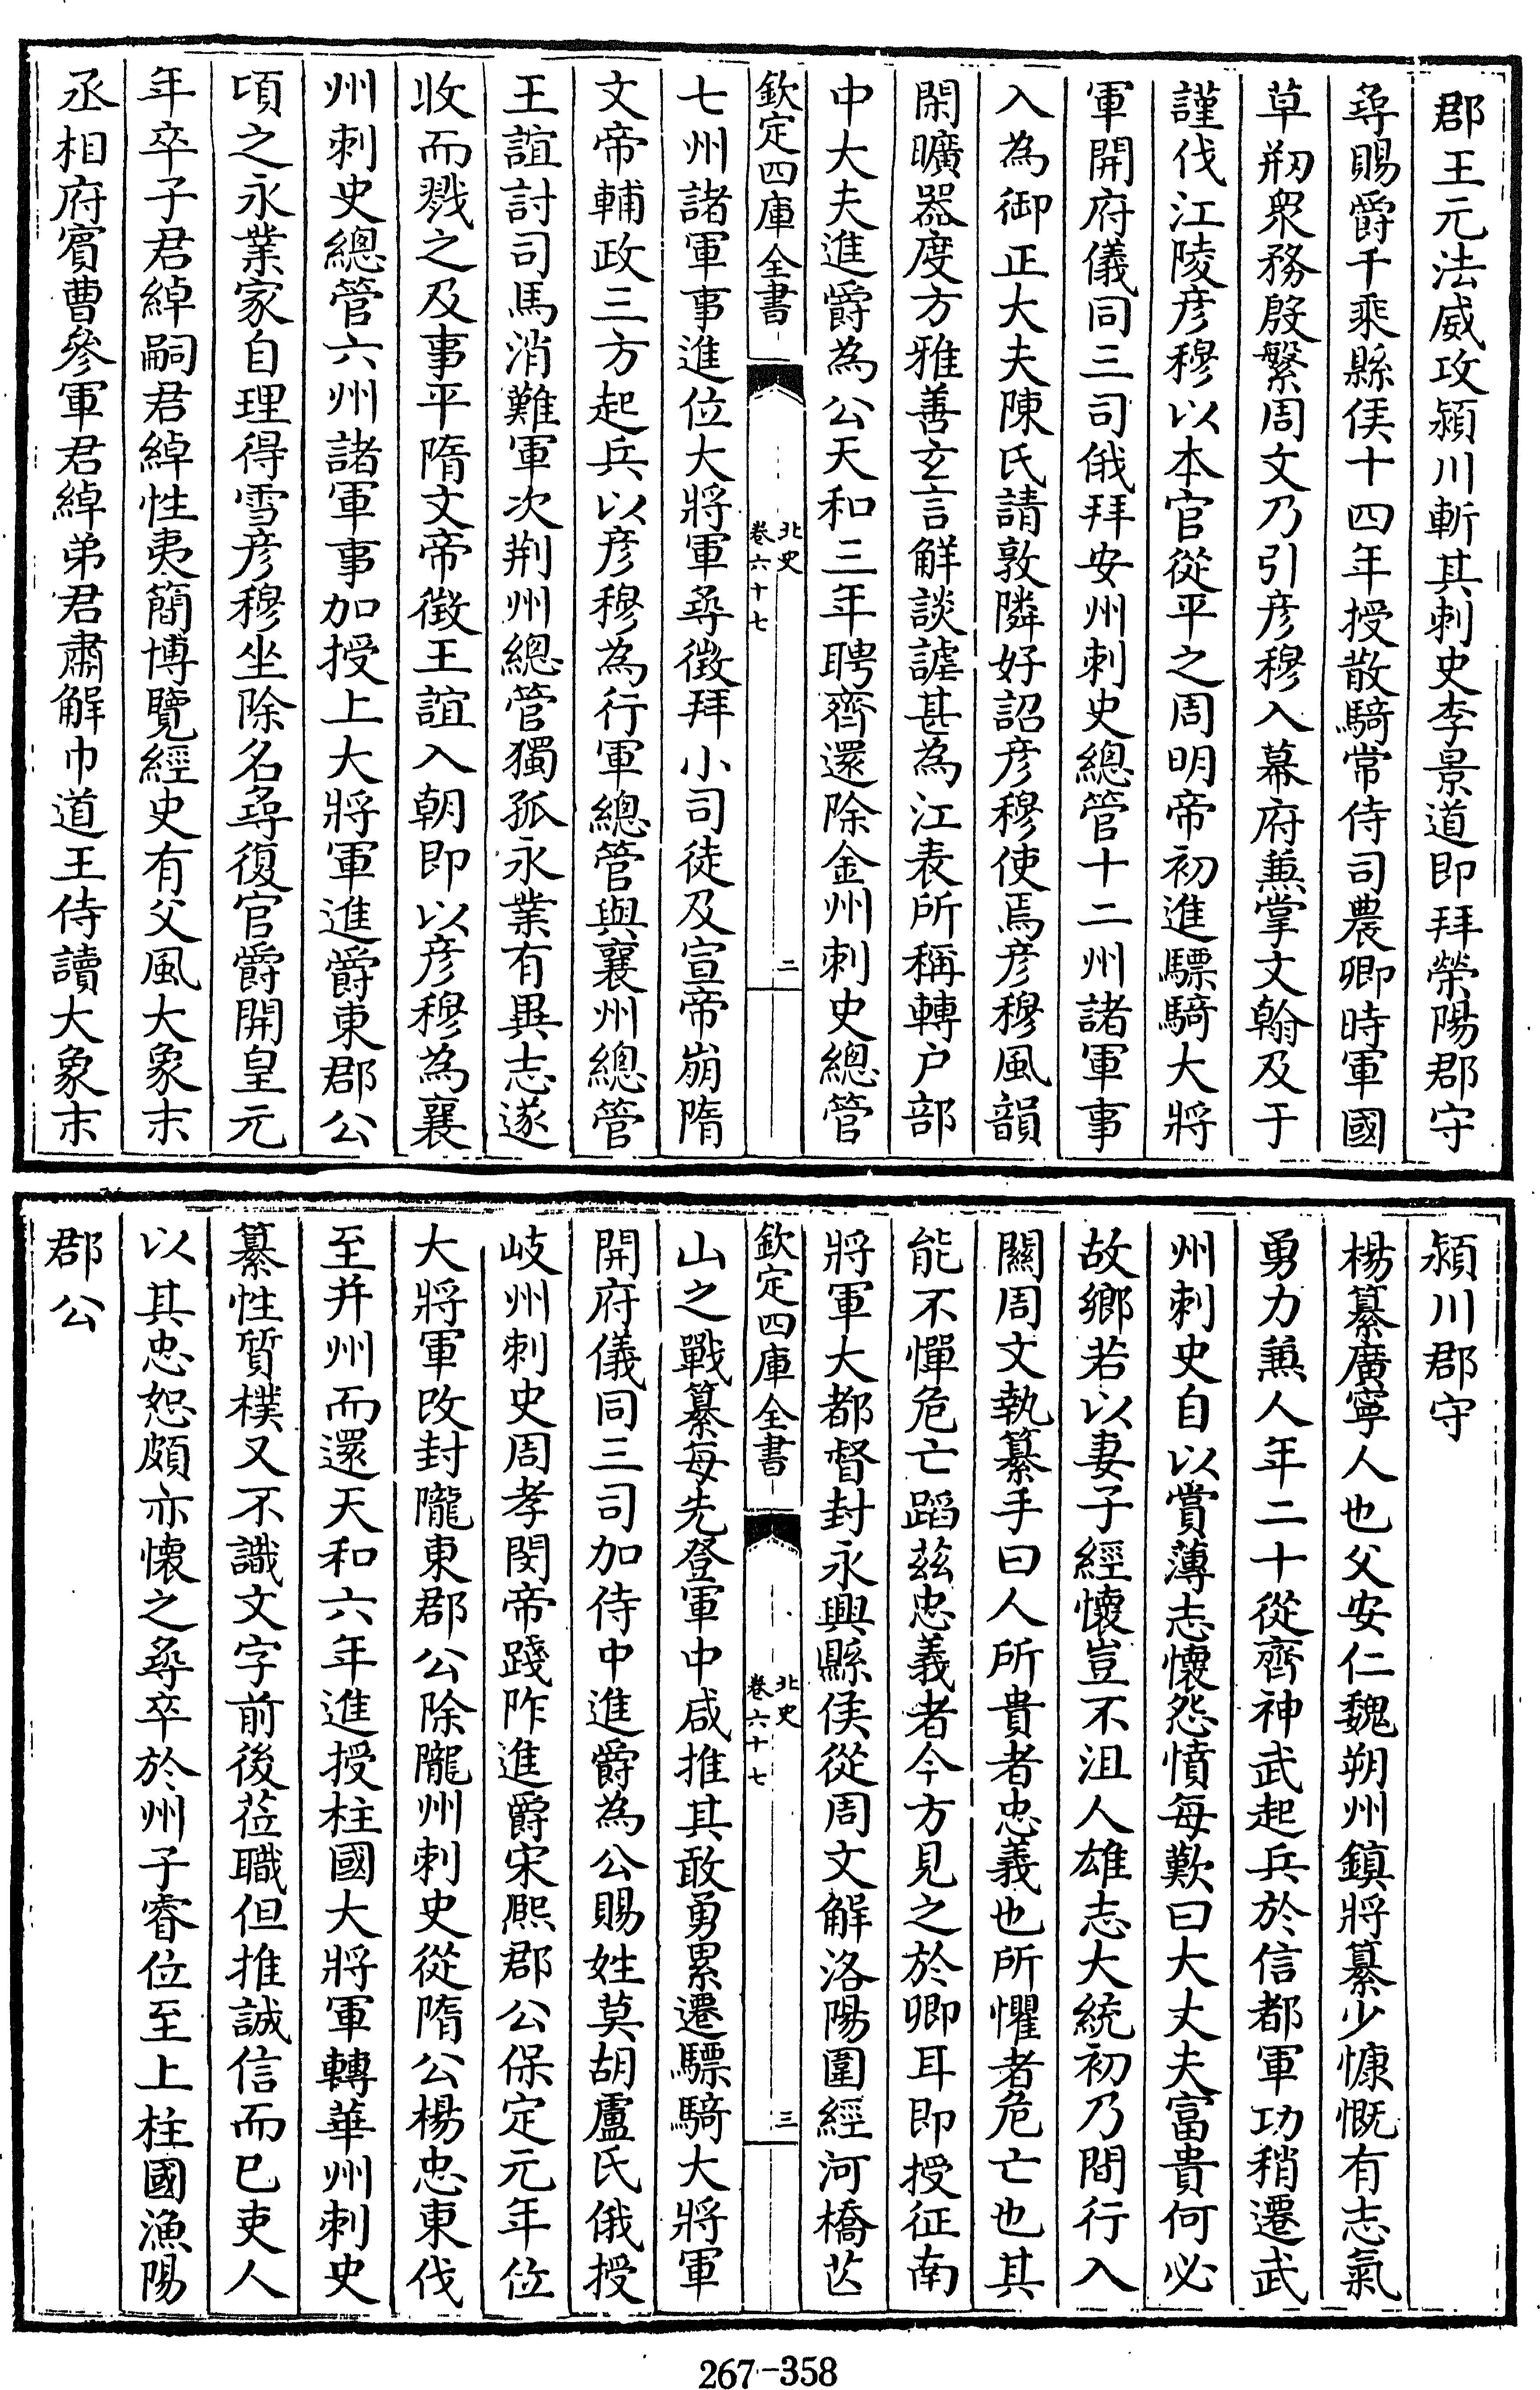 郡王元法威攻潁川斬其刺史李景道即拜滎陽郡守
尋賜爵千乘縣侯十四年授散騎常侍司農卿時軍國
草剏衆務殷繁周文乃引彥穆入幕府兼掌文翰及于
謹伐江陵彥穆以本官從平之周明帝初進驃騎大將
軍開府儀同三司俄拜安州刺史總管十二州諸軍事
入為御正大夫陳氏請敦隣好詔彥穆使焉彥穆風韻
閑曠器度方雅善玄言解談謔甚為江表所稱轉户部
中大夫進爵為公天和三年聘齊還除金州刺史總管
欽定四庫全書
北史
卷六十七
二
七州諸軍事進位大將軍尋徵拜小司徒及宣帝崩隋
文帝輔政三方起兵以彥穆為行軍總管與襄州總管
王誼討司馬消難軍次荆州總管獨孤永業有異志遂
收而戮之及事平隋文帝徵王誼入朝即以彥穆為襄
州刺史總管六州諸軍事加授上大將軍進爵東郡公
頃之永業家自理得雪彥穆坐除名尋復官爵開皇元
年卒子君綽嗣君綽性夷簡博覽經史有父風大象末
丞相府賓曹參軍君綽弟君肅解巾道王侍讀大象末
潁川郡守
楊纂廣寧人也父安仁魏朔州鎮將纂少慷慨有志氣
勇力兼人年二十從齊神武起兵於信都軍功稍遷武
州刺史自以賞薄志懷怨憤每歎曰大丈夫富貴何必
故鄉若以妻子經懷豈不沮人雄志大統初乃間行入
關周文執纂手曰人所貴者忠義也所懼者危亡也其
能不憚危亡蹈茲忠義者今方見之於卿耳即授征南
將軍大都督封永興縣侯從周文解洛陽圍經河橋芒
欽定四庫全書
北史
卷六十七
三
山之戰纂每先登軍中咸推其敢勇累遷驃騎大將軍
開府儀同三司加侍中進爵為公賜姓莫胡盧氏俄授
岐州刺史周孝閔帝踐阼進爵宋熙郡公保定元年位
大將軍改封隴東郡公除隴州刺史從隋公楊忠東伐
至并州而還天和六年進授柱國大將軍轉華州刺史
纂性質樸又不識文字前後莅職但推誠信而已吏人
以其忠恕頗亦懷之尋卒於州子睿位至上柱國漁陽
郡公
267-358